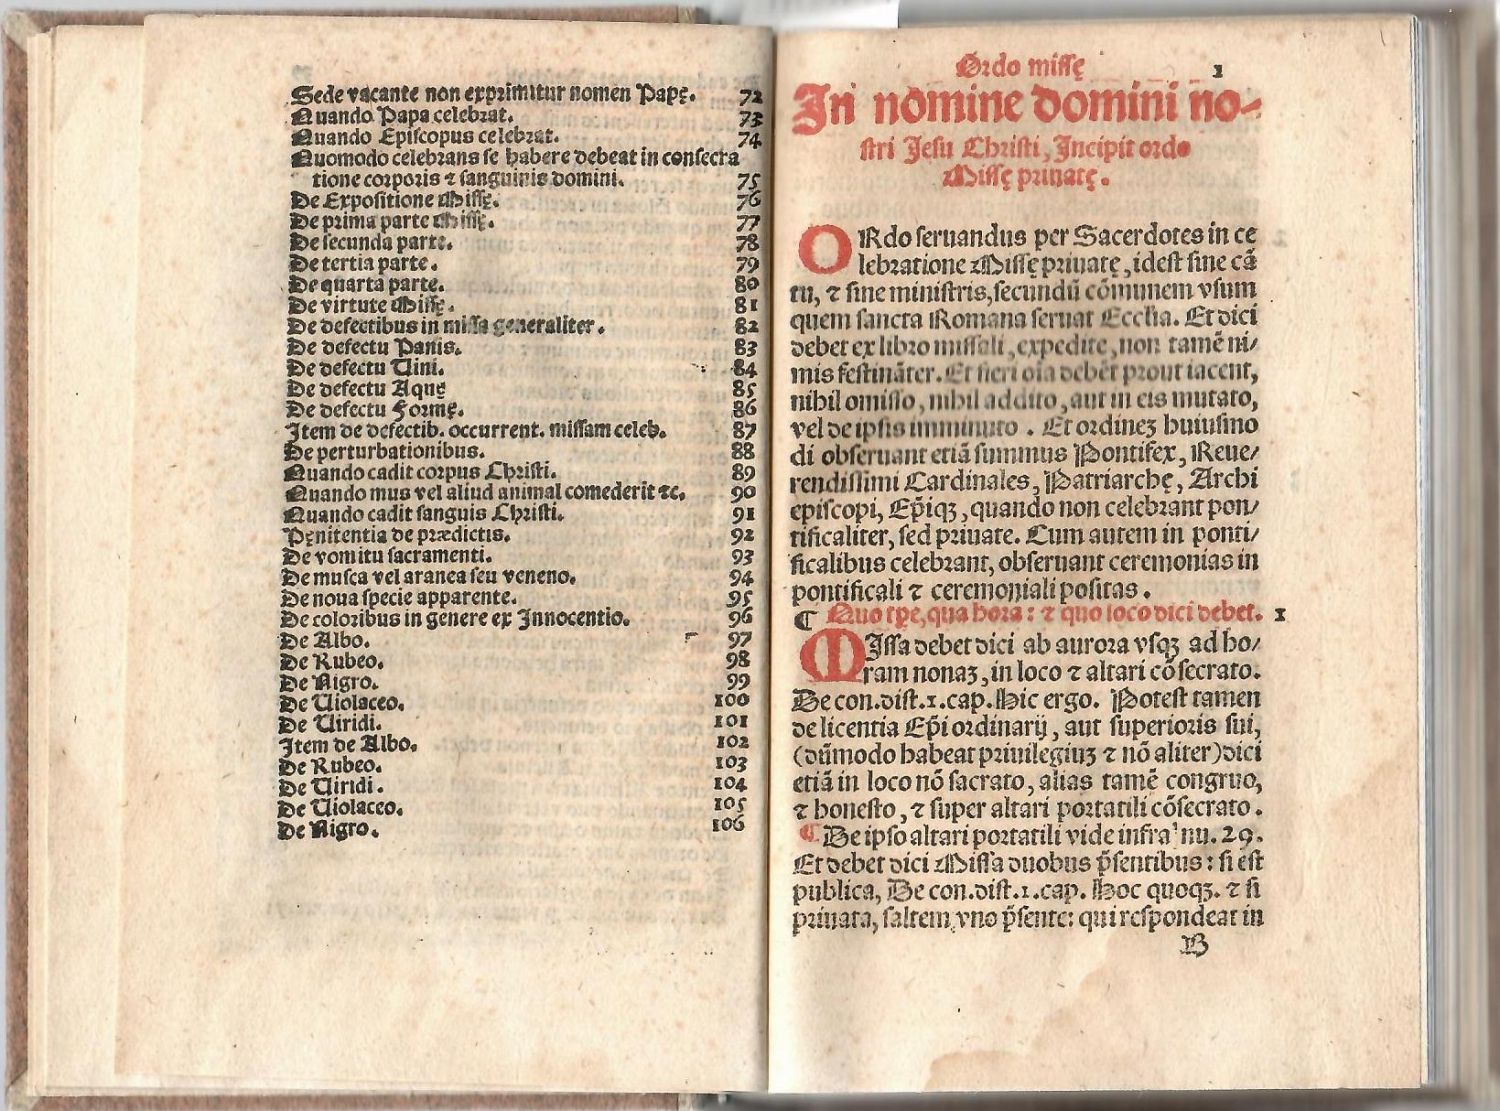 Sede vacante non exprimitur nomen Papę. 72
Quando Papa celebrat. 73
Quando Episcopus celebrat. 74
Quomodo celebrans se habere debeat in consecra
tione corporis ⁊ sanguinis domini. 75
De Expositione Missę. 76
De prima parte Missę. 77
De secunda parte. 78
De tertia parte. 79
De quarta parte. 80
De virtute Missę. 81
De defectibus in missa generaliter. 82
De defectu Panis. 83
De defectu Vini. 84
De defectu Aquę 85
De defectu Formę. 86
Item de defectib. occurrent. missam celeb. 87
De perturbationibus. 88
Quando cadit corpus Christi. 89
Quando mus vel aliud animal comederit ⁊c. 90
Quando cadit sanguis Christi. 91
Pęnitentia de prædictis. 92
De vomitu sacramenti. 93
De musca vel aranea seu veneno. 94
De noua specie apparente. 95
De coloribus in genere ex Innocentio. 96
De Albo. 97
De Rubeo. 98
De Nigro. 99
De Violaceo. 100
De Viridi. 101
Item de Albo. 102
De Rubeo. 103
De Viridi. 104
De Violaceo. 105
De Nigro. 106
Ordo missę 1
In nomine domini no-
stri Jesu Christi, Incipit ordo
Missę priuatę.
ORdo seruandus per Sacerdotes in ce
lebratione Missę priuatę, idest sine cã
tu, ⁊ sine ministris, secundũ cõmunem vsum
quem sancta Romana seruat Ecclia. Et dici
debet ex libro missali, expedite, non tamẽ ni/
mis festinãter. Et fieri oĩa debẽt prout iacent,
nihil omisso, nihil addito, aut in eis mutato,
vel de ipsis imminuto. Et ordinez huiusmo
di obseruant etiã summus Pontifex, Reue/
rendissimi Cardinales, Patriarchę, Archi
episcopi, Ep̃iqꝫ, quando non celebrant pon/
tificaliter, sed priuate. Cum autem in ponti/
ficalibus celebrant, obseruant ceremonias in
pontificali ⁊ ceremoniali positas.
¶ Quo tp̃e, qua hora: ⁊ quo loco dici debet. 1
MIssa debet dici ab aurora vsqꝫ ad ho/
ram nonaꝫ, in loco ⁊ altari cõsecrato.
De con.dist.1.cap. Hic ergo. Potest tamen
de licentia Ep̃i ordinarij, aut superioris sui,
(dũmodo habeat priuilegiuꝫ ⁊ nõ aliter) dici
etiã in loco nõ sacrato, alias tamẽ congruo,
⁊ honesto, ⁊ super altari portatili cõsecrato.
¶ De ipso altari portatili vide infra nu. 29.
Et debet dici Missa duobus p̃sentibus: si est
publica, De con.dist.1.cap. Hoc quoqꝫ. ⁊ si
priuata, saltem vno p̃sente: qui respondeat in
B